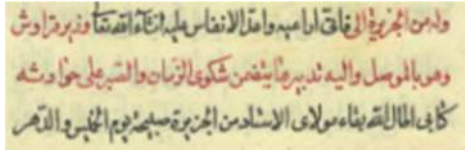 وله من الجزيرة الى فاتق اراعيه واعذ الانفاس عليه انشآء الله تعا وزير قراوش
وهو بالموصل واليه تدبيرها يتضمن شكوى الزمان والصبر على حوادثه
كتابى اطال الله بقاء مولاى الاستاد من الجزيرة صبيحة يوم الخميس والدهر